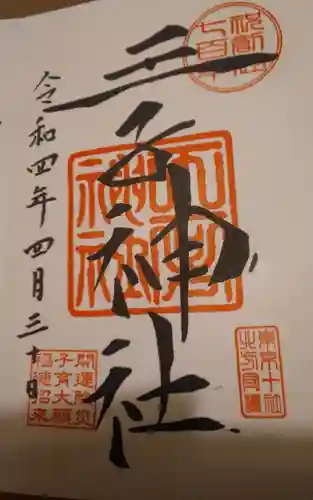 七百年
王子神社
令和四年四月三十日
王子神社
東京十社
北方守護
開運除災
子育大願
福徳招来